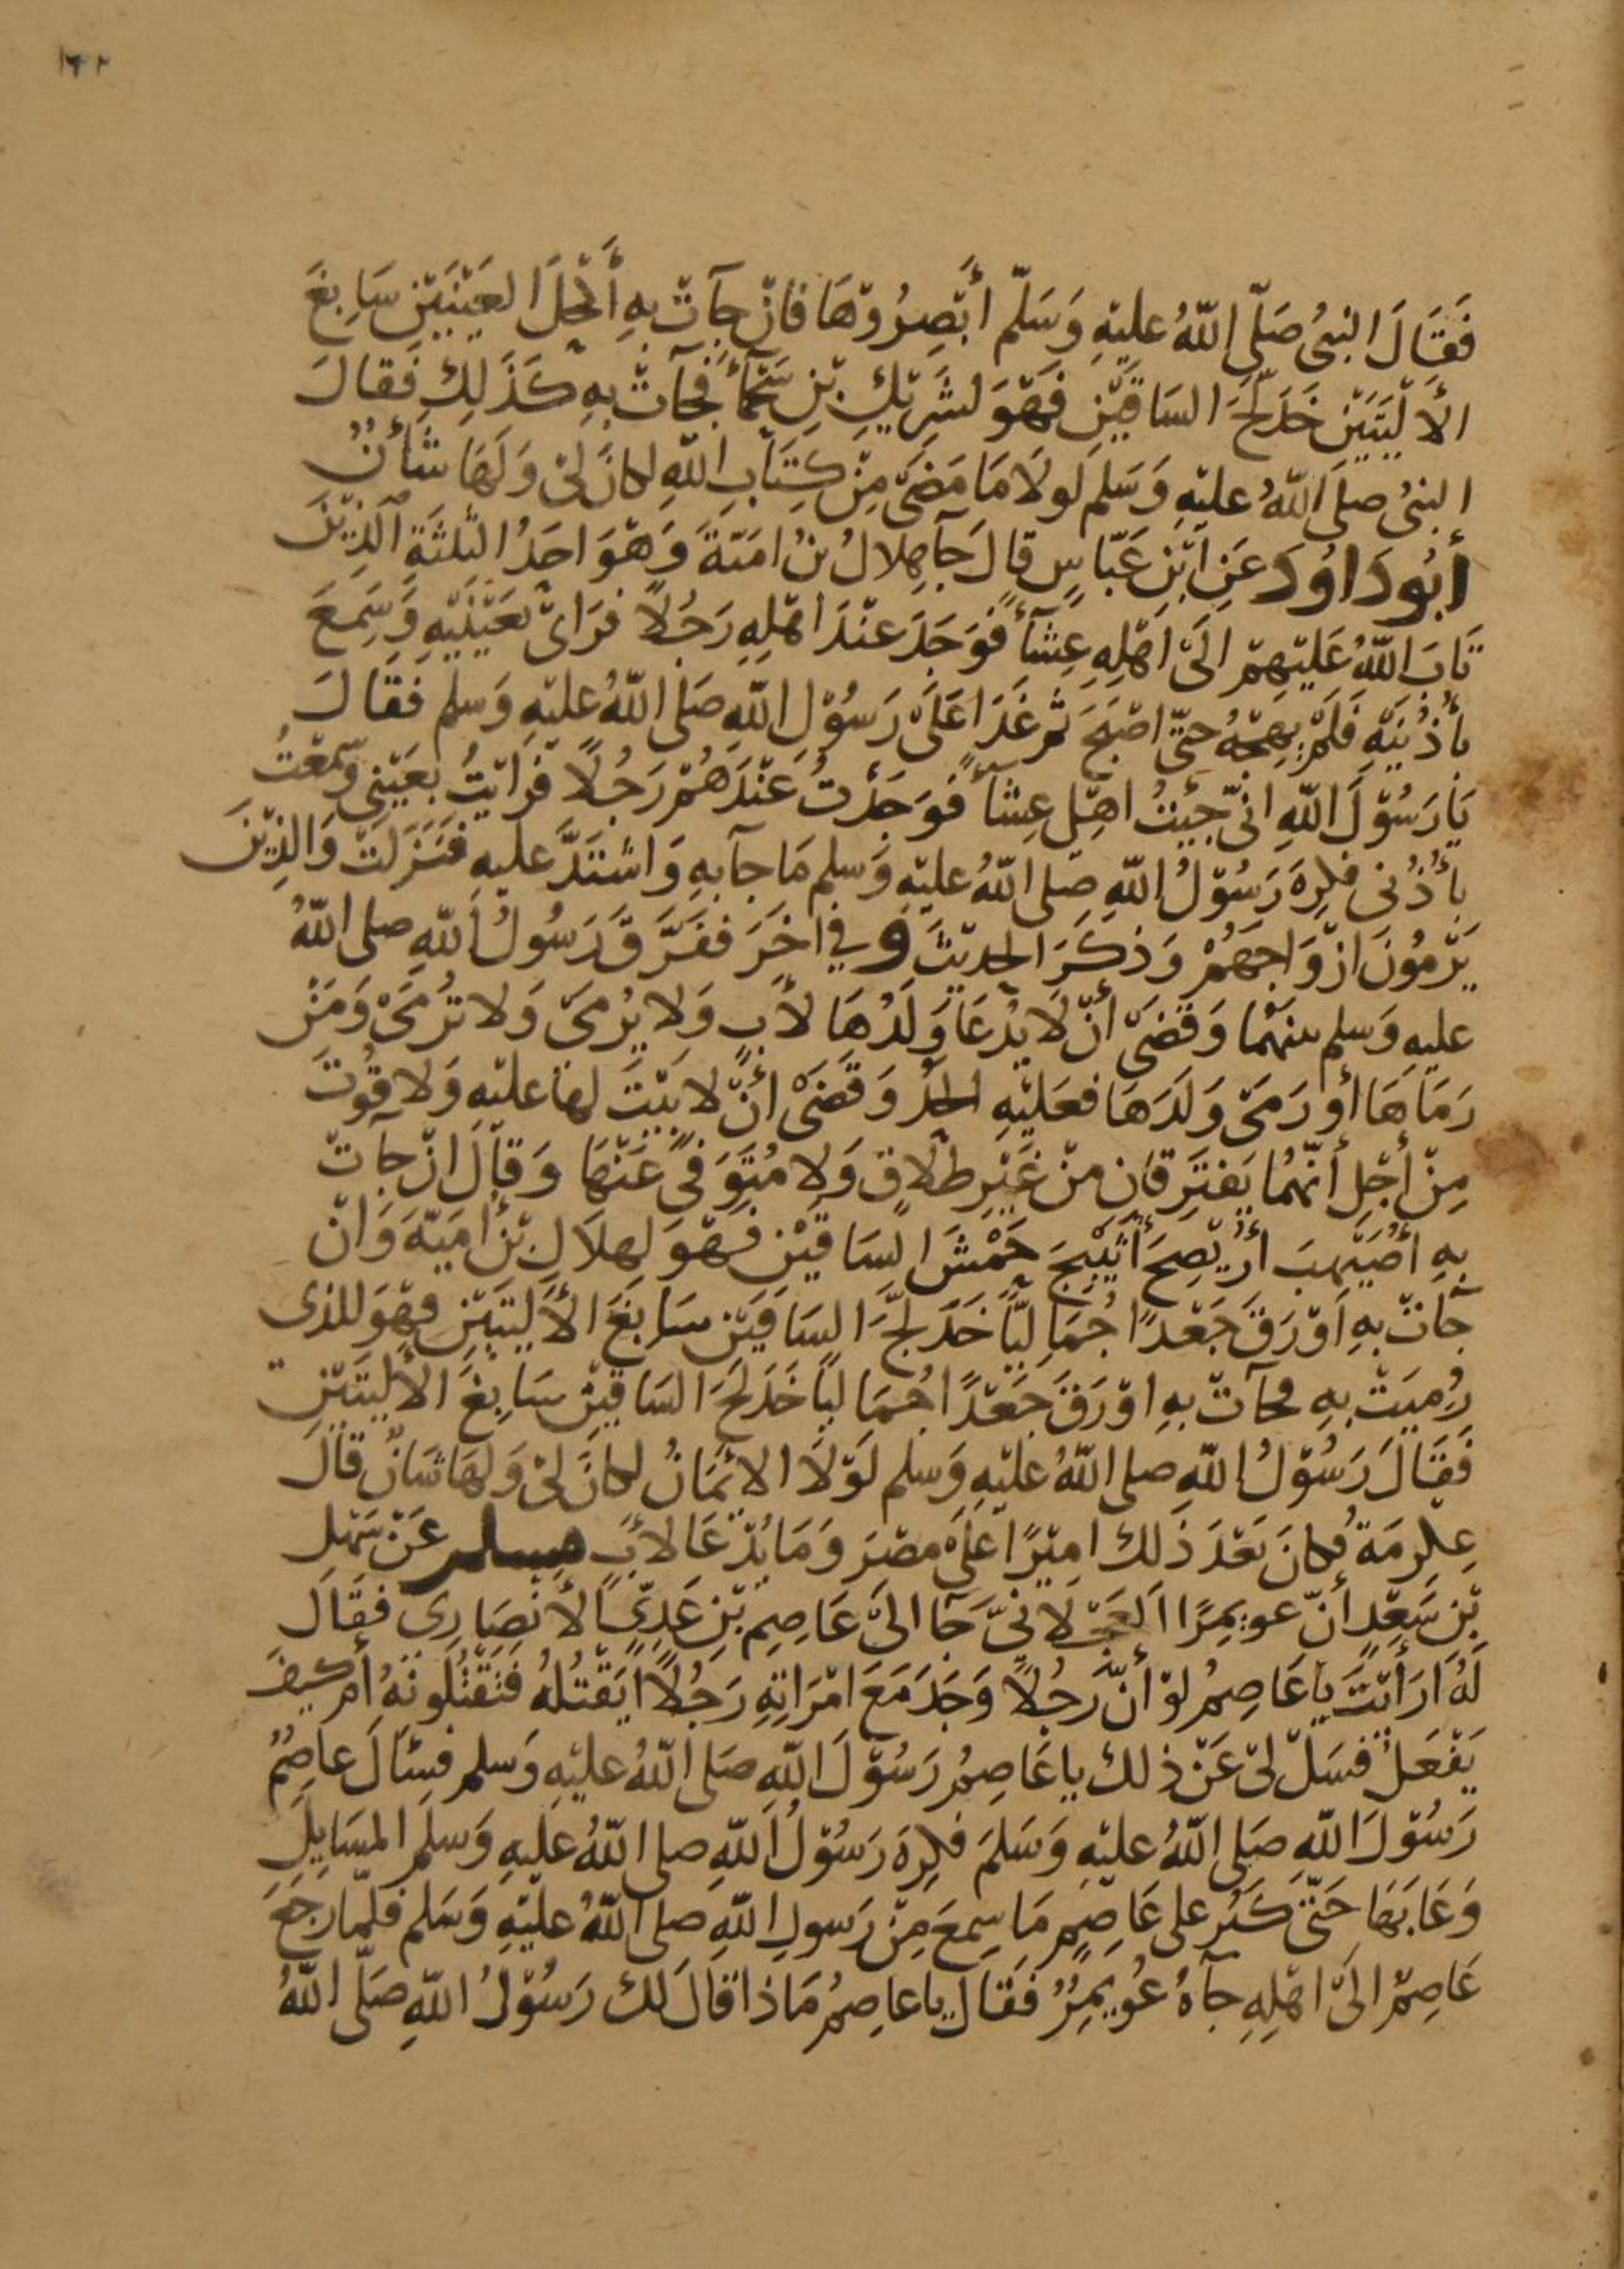 ١٤٢
فَقَالَ النبىُ صَلّى اللّهُ عليْهِ وَسَلّم أبْصِرُوْهَا فَانْ جآتْ بهِ أَكْحَلَ العَيْنَيْنِ سَابغَ
الأَلْيَتَيْنِ خَدَلَّجَ السَاقَيْنِ فَهْوَ لشَرِيْكِ بْنِ سَحْمَآءَ فجآتْ بهِ كَذَلِكِ فَقالَ
النبىُ صلىَ اللّهُ عليْهِ وَسَلم لَولَا مَا مَضَىَ مِنْ كِتَابِ اللّهِ لكانَ لىْ وَلَهَا شَأنٌ
أبُو دَاوُدَ عَنِ ابْنِ عَبّاسٍ قالَ جآ هِلالُ بنُ امَيّةَ وَهْوَ احَدُ الثّلثَةِ الذِيْنَ
تَابَ اللّهُ عَلَيْهِمْ الَىْ اهْلِهِ عِشَآءً فَوَجَدَ عنْدَ اهْلِهِ رَجُلاً فرَاىْ بعَيْنَيْهِ وَسَمِعَ
بأُذُنَيْهِ فَلَمْ يهِجْهُ حتّى اصْبَحَ ثم غَدَا عَلَىْ رَسُوْلِ اللّهِ صَلى اللّهُ عليْهِ وَسلم فقَالَ
يَا رَسُوْلَ اللّهِ انىّ جيْتُ اهْلِى عِشآءً فوَجَدْتُ عَنْدَهُمْ رَجُلاً فرَايْتُ بعَيْنِى وَسَمعْتُ
بأُذُنى فكِرِهَ رَسُوْلُ اللّهِ صَلى اللّهُ عليْهِ وَسلم مَا جآ بهِ وَاشْتَدَّ عليهِ فنَزَلَتْ وَالذِيْنَ
يَرْمُونَ ازْوَاجَهُمْ وَذكَرَ الحديْثَ وَفي اخرَ ففَرَّقَ رَسُولُ اللّهِ صلى اللّهُ
عليهِ وَسلم بينَهُمَا وَقَضَىْ أنْ لَا يُدْعَا وَلَدُهَا لأبٍ وَلا يُرْمَىْ وَلا تُرْمَىْ وَمَنْ
رَمَاهَا أو رَمَىْ وَلَدَهَا فعَلَيْهِ الحَدُّ وَقَضَىْ أنْ لا بَيْتَ لهَا عليْهِ وَلا قُوْتَ
مِنْ أجْلِ أنّهُمَا يَفتَرِقانِ منْ غَيْرِ طلاقٍ وَلا مُتَوَفىً عَنْهَا وَقالَ انْ جآتْ
بهِ أُصَيْهِبَ أُرَيْصِحَ أُثَيْبِجَ حَمْشَ السَاقَيْنِ فهْوَ لهِلَالِ بْنِ امَيّةَ وَانْ
جآتْ بهِ اوْرَقَ جَعْدًا جُمَالِيّاً خَدَلّجَ السَاقَيْنِ سَابغَ الأَلْيَتَيْنِ فهْوَ للذى
رُمِيَتْ بهِ فجآتْ بهِ اوْرَقَ جَعْدًا جُمَالياً خَدَلّجَ السَاقَيْنِ سَابِغَ الأَلْيَتَيْنِ
فَقَالَ رَسُوْلُ اللّهِ صلى اللّهُ عليْهِ وَسلم لَوْلَا الائمَانُ لكانَ لىْ وَلهَا شَأنٌ قالَ
عِكرِمَةُ فكانَ بَعْدَ ذَلك امِيْرًا عَلَىْ مصْرَ وَمَا يُدْعَا لأبٍ مسلم عَنْ سَهْلِ
بْنِ سَعْدٍ أنّ عوَيمِرًا العَجْلانِىّ جَآ الىَ عَاصِمِ بْنِ عَدِىٍّ الأنصَارِى فقَالَ
لَهُ ارَأَيْتَ يا عَاصِمُ لوْ أنّ رَجُلاً وَجَدَ مَعَ امْرَاتِهِ رَجُلاً ايَقْتُلُهُ فتَقْتُلُونَهُ أم كيفَ
يَفْعَلْ فسَلْ لىْ عَنْ ذلك يا عَاصِمُ رَسُوْلَ اللّهِ صَلى اللّهُ عليْهِ وَسلم فسَأَلَ عاصِمٌ
رَسُوْلَ اللّهِ صَلى اللّهُ عليْهِ وَسَلمَ فكرِهَ رَسُوْلُ اللّهِ صلى اللّهُ عليهِ وَسلم المسَايِلَ
وَعَابَهَا حَتىّ كَبُرَ على عَاصِمٍ مَا سِمعَ مِنْ رَسولِ اللّهِ صلى اللّهُ عليْهِ وَسَلم فلمّا رجعَ
عَاصِمٌ الىَْ اهْلِهِ جآهُ عُوَيمِرٌ فقَالَ يا عاصِمُ مَاذا قالَ لك رَسُوْلُ اللّهِ صَلّى اللّهُ